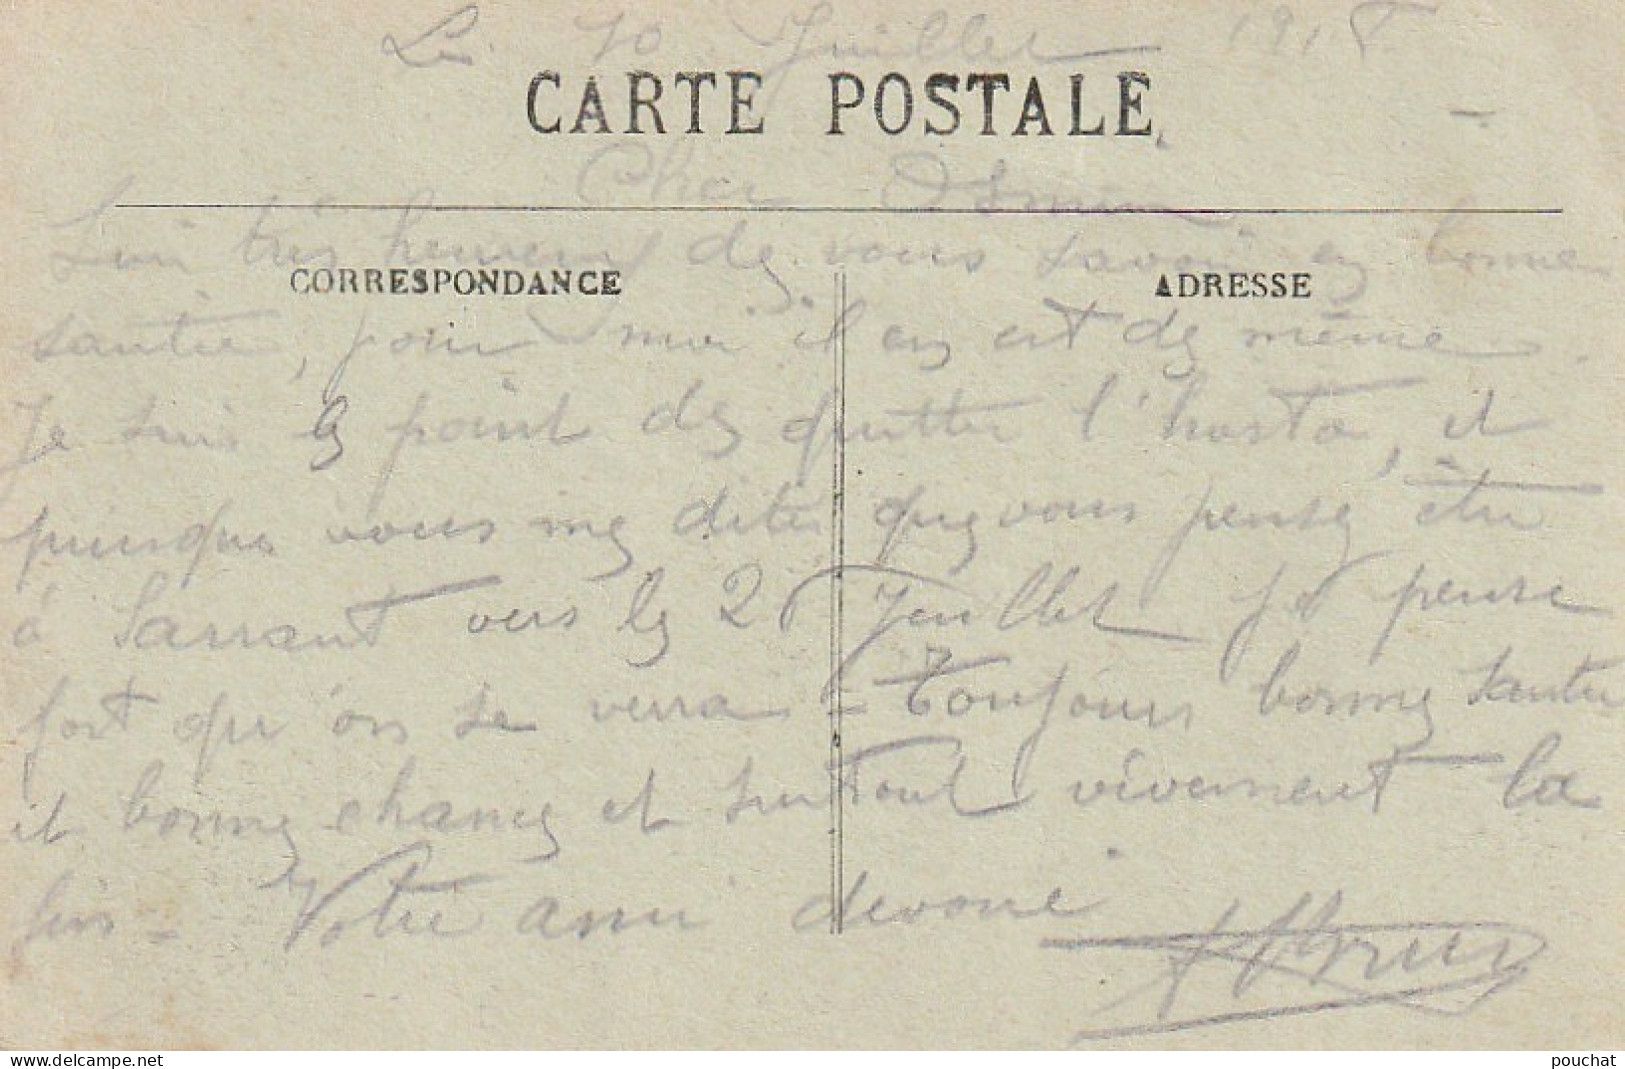 Le 10 Juillet 1918
CARTE POSTALE
Cher Osmin
Suis très heureux de vous savoir en bonne
CORRESPONDANCE
ADRESSE
santée, pour moi il en est de même.
Je suis le point de quitter l'hosto, et
puisque vous me dites que vous pensé être
à Sarrant vers le 20 Juillet je pense
fort qu'on se verra = Toujours bonne santée
et bonne chance et surtout vivement la
fin = Votre ami devoué
delcampe.net
pouchat